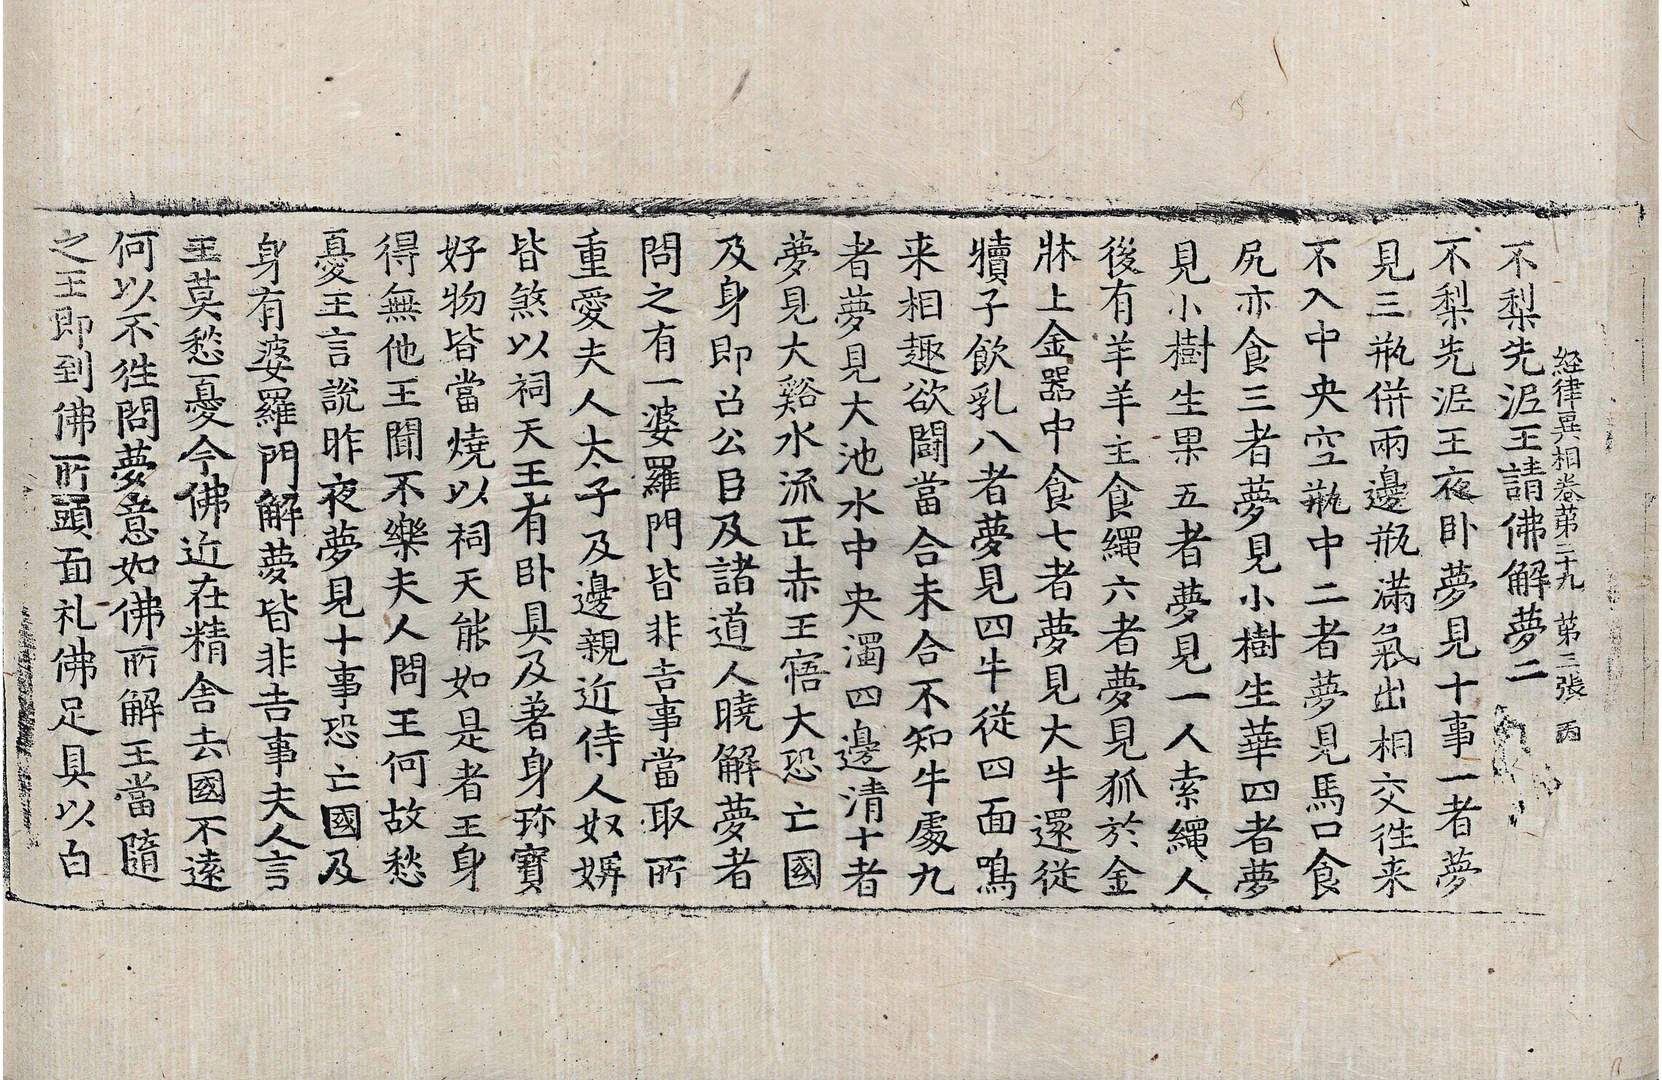 經律異相卷第二十九 第三張 丙
不梨先泥王請佛解夢二
不梨先泥王夜卧夢見十事一者夢
見三瓶併兩邊瓶滿氣出相交往来
不入中央空瓶中二者夢見馬口食
尻亦食三者夢見小樹生華四者夢
見小樹生果五者夢見一人索繩人
後有羊羊主食繩六者夢見狐於金
牀上金器中食七者夢見大牛還從
犢子飲乳八者夢見四牛從四面鳴
来相趣欲鬪當合未合不知牛處九
者夢見大池水中央濁四邊清十者
夢見大谿水流正赤王寤大恐亡國
及身即召公臣及諸道人曉解夢者
問之有一婆羅門皆非吉事當取所
重愛夫人太子及邊親近侍人奴婢
皆煞以祠天王有卧具及著身珎寶
好物皆當燒以祠天能如是者王身
得無他王聞不樂夫人問王何故愁
憂王言說昨夜夢見十事恐亡國及
身有婆羅門解夢皆非吉事夫人言
王莫愁憂今佛近在精舍去國不遠
何以不往問夢意如佛所解王當隨
之王即到佛所頭面礼佛足具以白